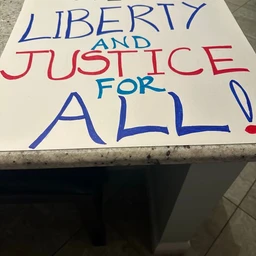 LIBERTY
AND
JUSTICE
FOR
ALL!